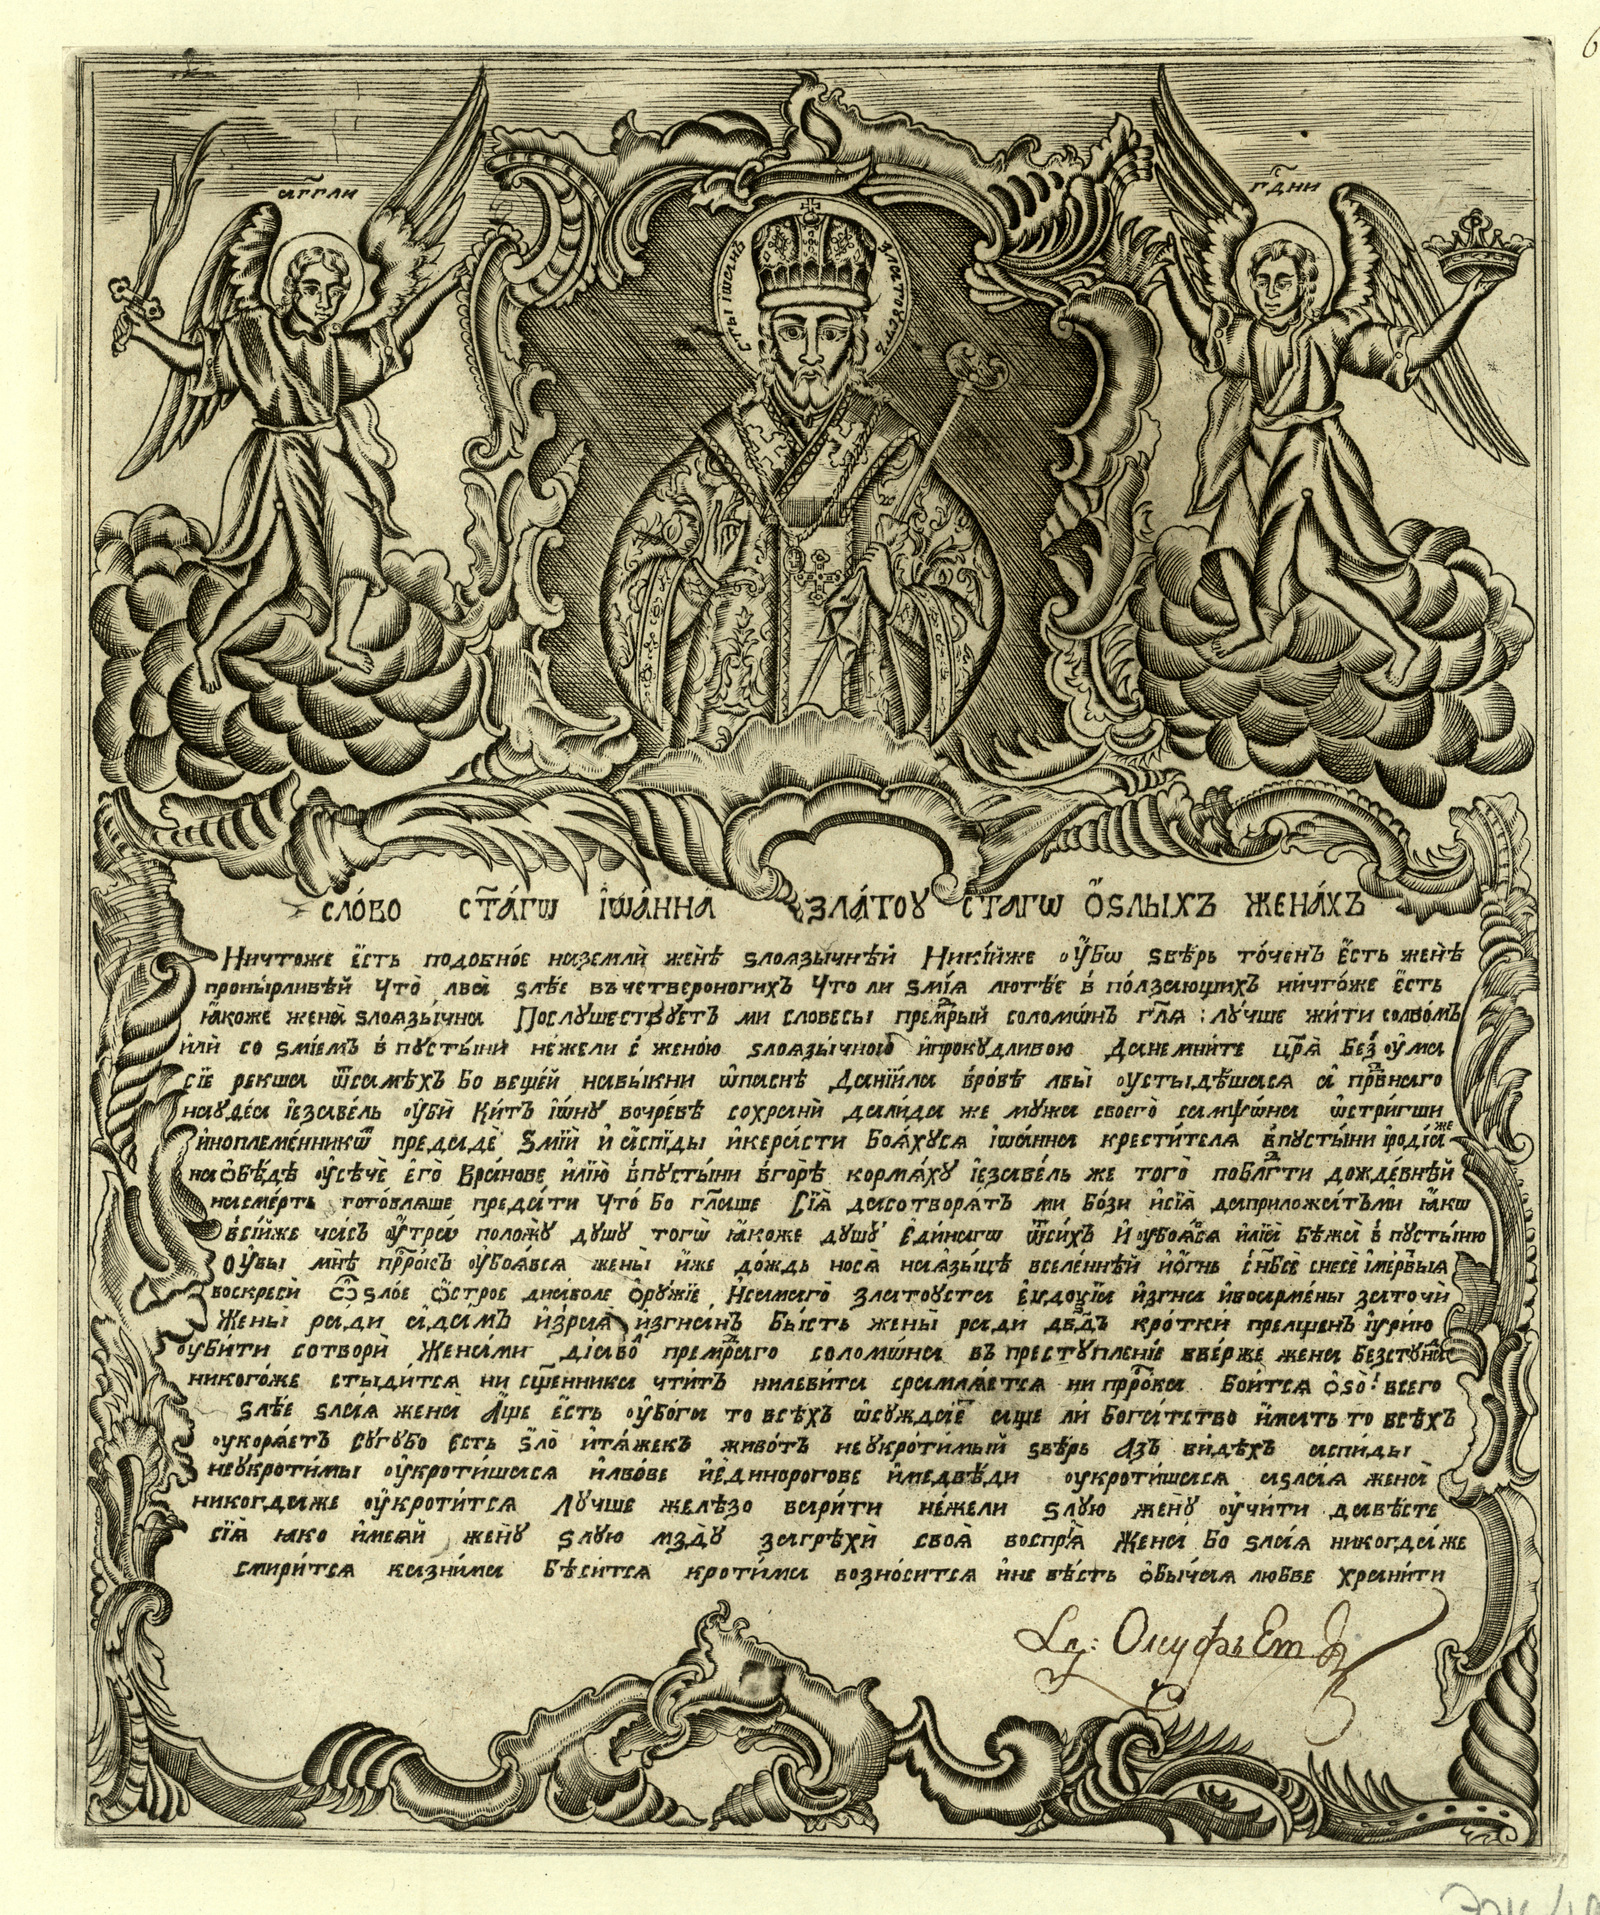 аг҃гли
гд҃ни
ст҃ы іѡаннъ златоустъ
СЛО́ВО СТ҃А́ГѠ ІѠА́ННА ЗЛАТОУ СТАГѠ Ѽ ЅЛЫХЪ ЖЕНА́ХЪ
Ничтоже є҆́сть подобно́е наземлѝ женѣ̀ ѕлоязы́чнѣй Никі́йже оу҆́бѡ ѕвѣ́рь то́ченъ є҆́сть женѣ̀
проны́рливѣй Что̀ лва̀ ѕлѣ́е въ четвероногихъ Что ли ѕмі́я лютѣ́е в̾ по́лзающихъ ничто́же є҆́сть
ꙗ҆́коже жена̀ ѕлоязы́чна Послушествуетъ ми словесы̀ прем҃рый соломѡ́нъ гл҃я: лу́чше жи́ти солво́мъ
и҆лѝ со ѕмі́емъ в̾ пусты́ни не́жели с̾ жено́ю ѕлоязы́чною и҆прокудливою Данемни́те цр҃я̀ без̾ оу҆ма
сїе рекша ѿсамѣ́хъ бо веще́й навы́кни ѡ҆па́снѣ Данїи́ла в̾ро́вѣ лвы̀ оустыдѣ́шася а҆ пра́внаго
науѳе́а і҆езаве́ль оу҆бѝ Ки́тъ і҆ѡ́ну вочре́вѣ сохранѝ дали́да же мужа своего̀ сампѡ́на ѡ҆стри́гши
и҆ноплеме́нникѡм̾ предадѐ Ѕмі́й и҆ а҆́спїды и҆кера́сти Боя́хуся і҆ѡа́нна крести́теля в̾пусты́ни і҆родіа́же
на ѡ҆бѣ́дѣ оу҆сѣ́че є҆го̀ Вра́нове и҆лїю̀ в̾пусты́ни в̾горѣ̀ кормя́ху і҆езаве́ль же того̀ побл҃гти дожде́внѣй
насме́рть гото́вляше преда́ти Что́ бо гл҃аше Сїя̀ дасотворя́тъ ми бо́зи и҆сїя̀ даприложа́тъми ꙗ҆́кѡ
в̾сі́йже ча́съ оу҆́тра положу̀ душу тогѡ̀ ꙗ҆́коже душу̀ є҆ди́нагѡ ѿси́хъ И҆ оубоя́вся и҆лїа̀ бѣжа̀ в̾ пусты́ню
оу҆вы̀ мнѣ̀ пр҃ро́къ оу҆боя́вся жены̀ и҆́же до́ждь нося̀ наязы́цѣ вселе́ннѣй и҆ѻ҆́гнь с̾нб҃сѐ снесѐ і҆ме́ртвыя
воскресѝ Ѽ ѕло́е ѻ҆́строе дїаволе ѻ҆ру́жїе, Нсамаго̀ Златоуста є҆удоѯі́а и҆згна и҆воарме́ны заточѝ
Жены̀ ра́ди а҆да́мъ и҆зра́я и҆згна́нъ Бы́сть жены̀ ра́ди дв҃дъ кро́тки преще́нъ і҆у́рїю
оу҆би́ти сотворѝ Жена́ми дїа́волъ прем҃раго соломѡ́на въ преступле́нїе вве́рже жена безсту́дна
никого́же стыди́тся ни сщ҃енника чти́тъ нилеви́та срамля́ется ни пр҃ро́ка бои́тся Ѽ ѕо! всего
ѕлѣ́е ѕла́я жена̀ А҆́ще є҆́сть оу҆бо́га то всѣ́хъ ѡ҆сужда́є а҆ще ли бога́тство и҆́мать то всѣ́хъ
оукоря́етъ Сугу́бо є҆сть ѕло̀ и҆тя́жекъ живо́тъ неукроти́мый ѕвѣ́рь А҆зъ ви́дѣхъ а҆спи́ды
неукроти́мы оу҆кроти́шася и҆лво́ве и҆є҆динорогове и҆медвѣ́ди оукроти́шася а҆ѕла́я жена̀
никогдаже оу҆кроти́тся Лучше желѣ́зо вари́ти не́жели ѕлую жену̀ оу҆чи́ти да вѣ́сте
сїя̀ ꙗко и҆ме́яй жену̀ ѕлую мзду̀ загрѣхѝ своя̀ воспрїя̀ Жена̀ бо ѕла́я никогда́же
смири́тся казни́ма бѣ́сится кроти́ма возно́сится и҆не вѣ́сть ѻ҆бы́чая любве храни́ти